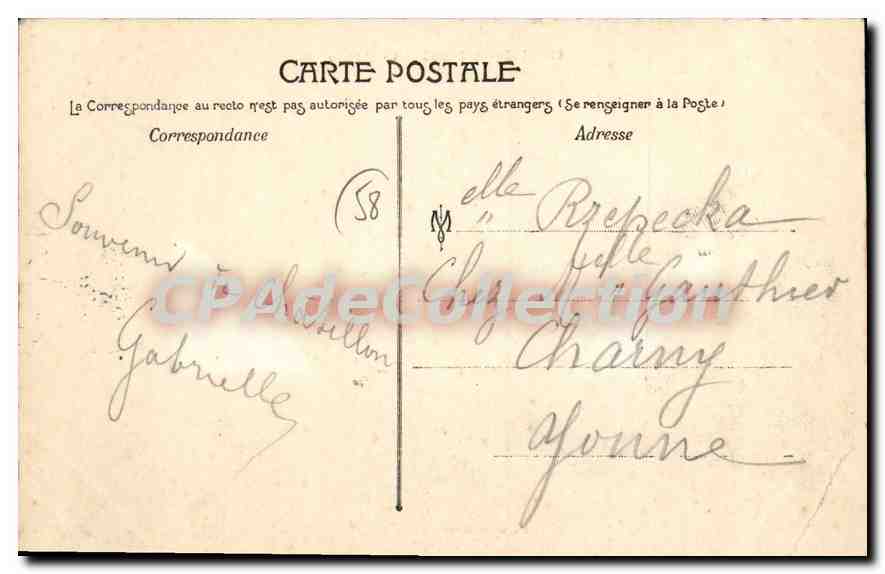 CARTE POSTALE
La Correspondance au recto n'est pas autorisée par tous les pays étrangers (Se renseigner à la Poste)
Correspondance
Adresse
58
Souvenir à Chatillon
Gabrielle
elle Rzepecka
Chez Melle Gauthier
Charny
Yonne
CPAdeCollection